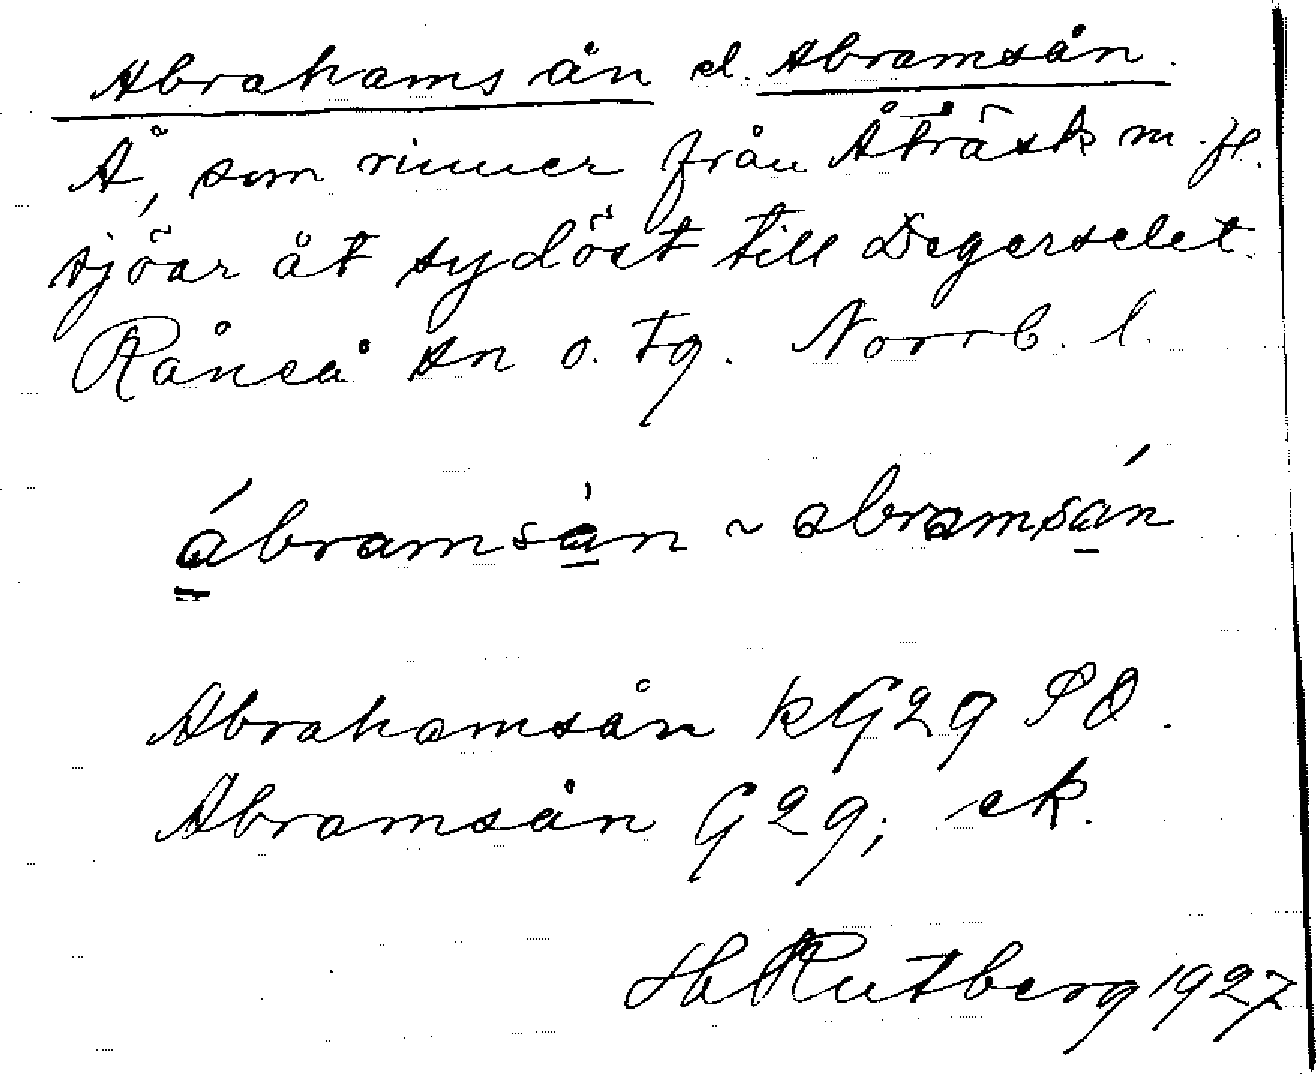 Abrahamsån el. Abramsån.
Å, som rinner från Åträsk m. fl.
sjöar åt sydöst till Degerselet.
Råneå sn o. tg. Norrb. l.
ábramsån ~ abramsán
Abrahamsån kG29 SO.
Abramsån G29; ek.
Hb Rutberg 1927